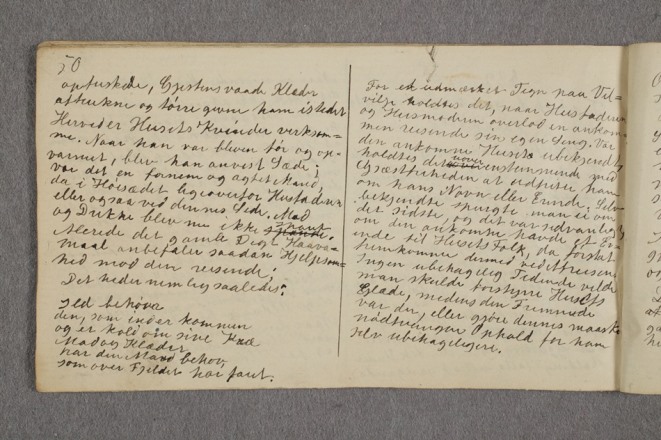 50
opfriskede, Gjestens vaade Klæder
aftrukne og tørre givne ham istedet
Herveder Husets Kvinder virksom=
me. Naar han var bleven tør og op-
varmet, blev han anvist Sæde;
var det en fornem og agtet Mand,
da i Høisædet ligeoverfor Husfaderen
eller ogsaa ved dennes Side. Mad
og Drikke blev nu ikke spart
Allerede det gamle Digt Haava=
maal anbefaler saadan Hjelpsom=
hed mod den reisende.
Det heder nemlig saaledes:
Ild behøver
den, som inder kommen
og er kold om sine Knæ
Mad og Klæder
har den Mand behov,
som over Fjeldet har faret.
For et udmærket Tegn paa Vel=
vilje holdtes det, naar Husfaderen
og Husmoderen overlod en ankom=
men reisende sin egen Seng. Var
den ankomne Huset ubekjendt,
holdtes det uoverensstemmende med
Gjæstfriheden at udfritte ham
om hans Navn eller Ærinde. Selv
bekjendte spurgte man ei om
det sidste, og det var sedvanligt,
om den ankomne havde et Ær-
inde til Husets Folk, da først at
fremkomme dermed ved Afreisen
Ingen ubehagelig Tidende vilde
man skulde forstyrre Husets
Glæde, medens den Fremmede
var der, eller gjøre dennes maaske
nødtvungne Ophold for ham
selv ubehageligere.